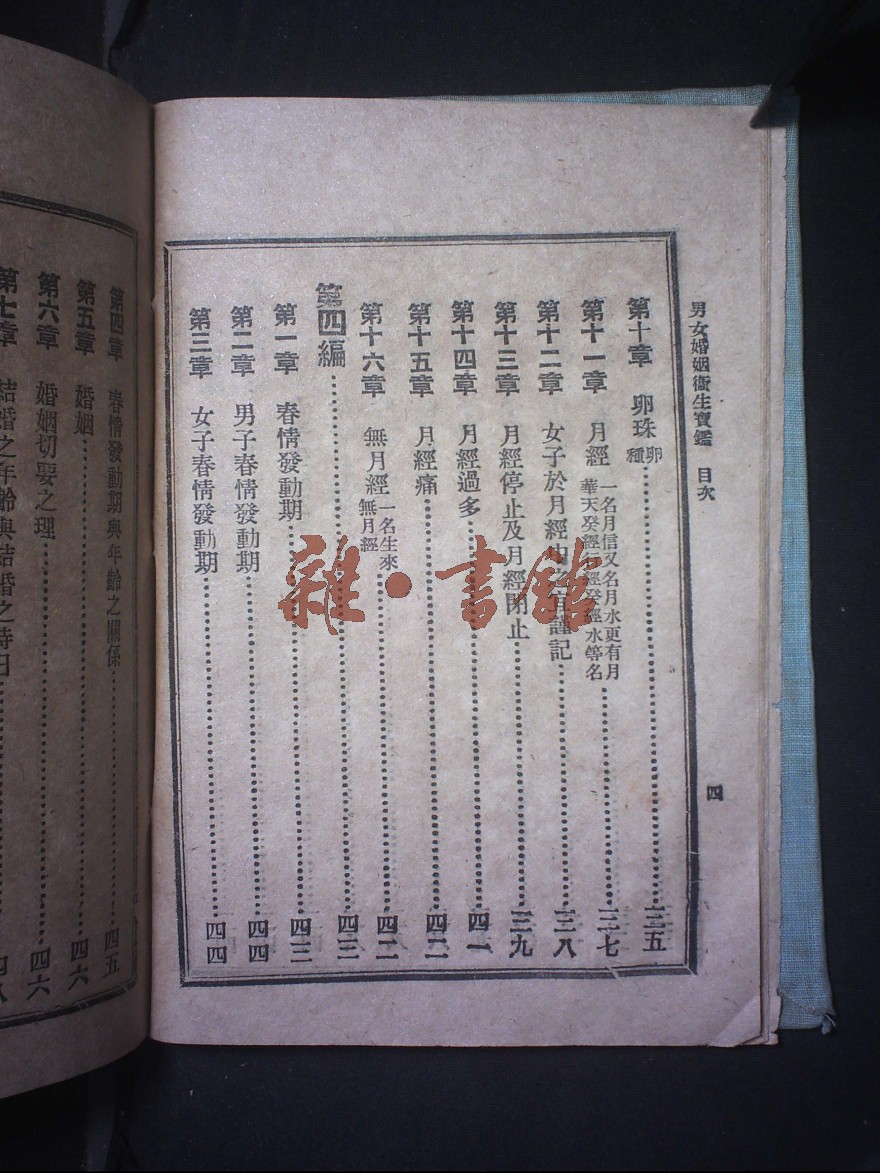 男女婚姻衛生寶鑑 目次
四
第十章 卵珠 卵種 三五
第十一章 月經 一名月信又名月水更有月華天癸經行經發經水等名 三七
第十二章 女子於月經中之宜謹記 三八
第十三章 月經停止及月經閉止 三九
第十四章 月經過多 四一
第十五章 月經痛 四二
第十六章 無月經 一名生來無月經 四二
第四編 四三
第一章 春情發動期 四三
第二章 男子春情發動期 四四
第三章 女子春情發動期 四四
第四章 春情發動期與年齡之關係 四五
第五章 婚姻 四六
第六章 婚姻切要之理 四六
第七章 結婚之年齡與結婚之時日 四八
雜·書館